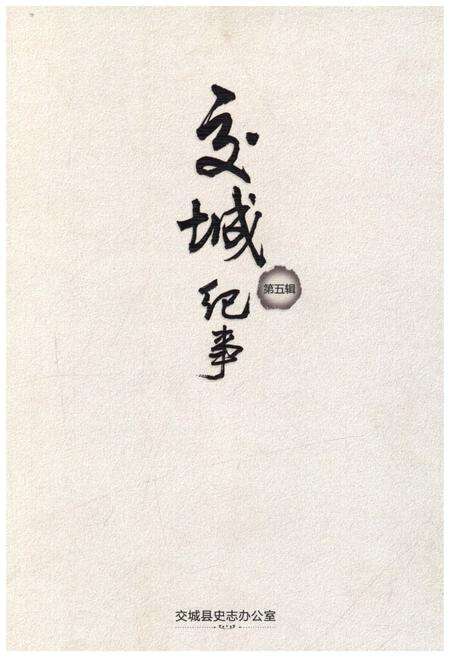 交城
纪事
第五辑
交城县史志办公室